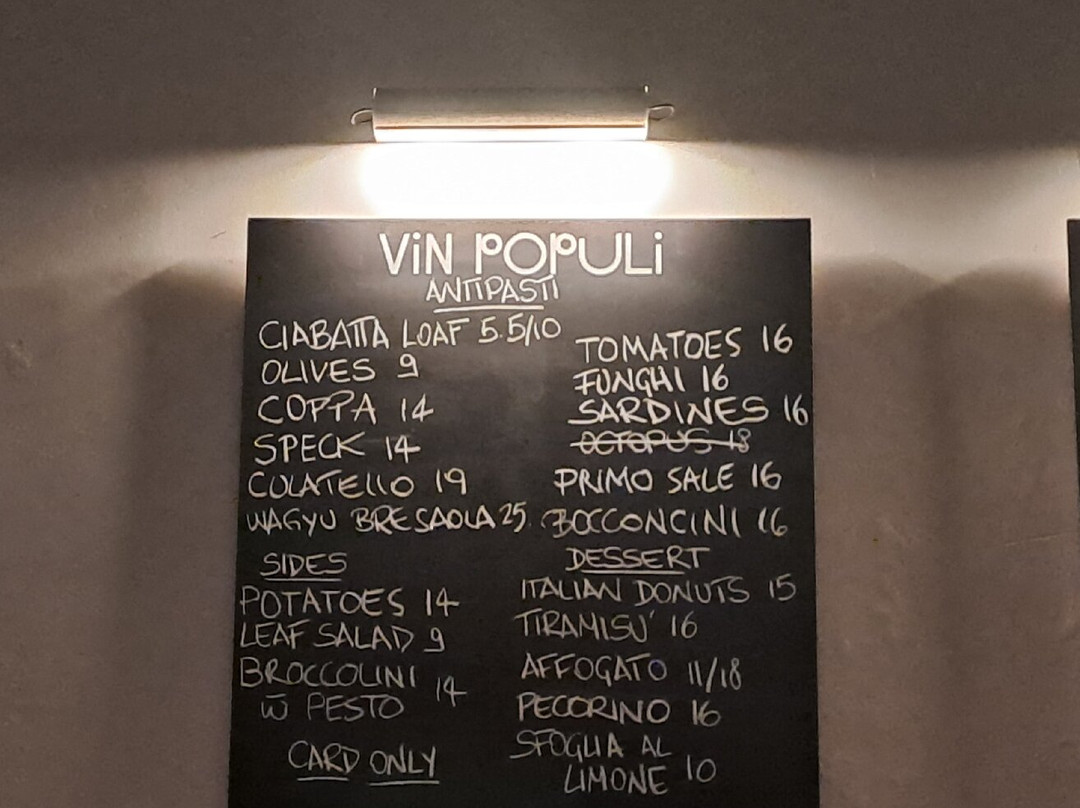 ViN POPULi
ANTIPASTI
CIABATTA LOAF 5.5/10
OLIVES 9
COPPA 14
SPECK 14
CULATELLO 19
WAGYU BRESAOLA 25
TOMATOES 16
FUNGHI 16
SARDINES 16
OCTOPUS 18
PRIMO SALE 16
BOCCONCINI 16
SIDES
POTATOES 14
LEAF SALAD 9
BROCCOLINI
W̄ PESTO 14
CARD ONLY
DESSERT
ITALIAN DONUTS 15
TIRAMISU' 16
AFFOGATO 11/18
PECORINO 16
SFOGLIA AL
LIMONE 10